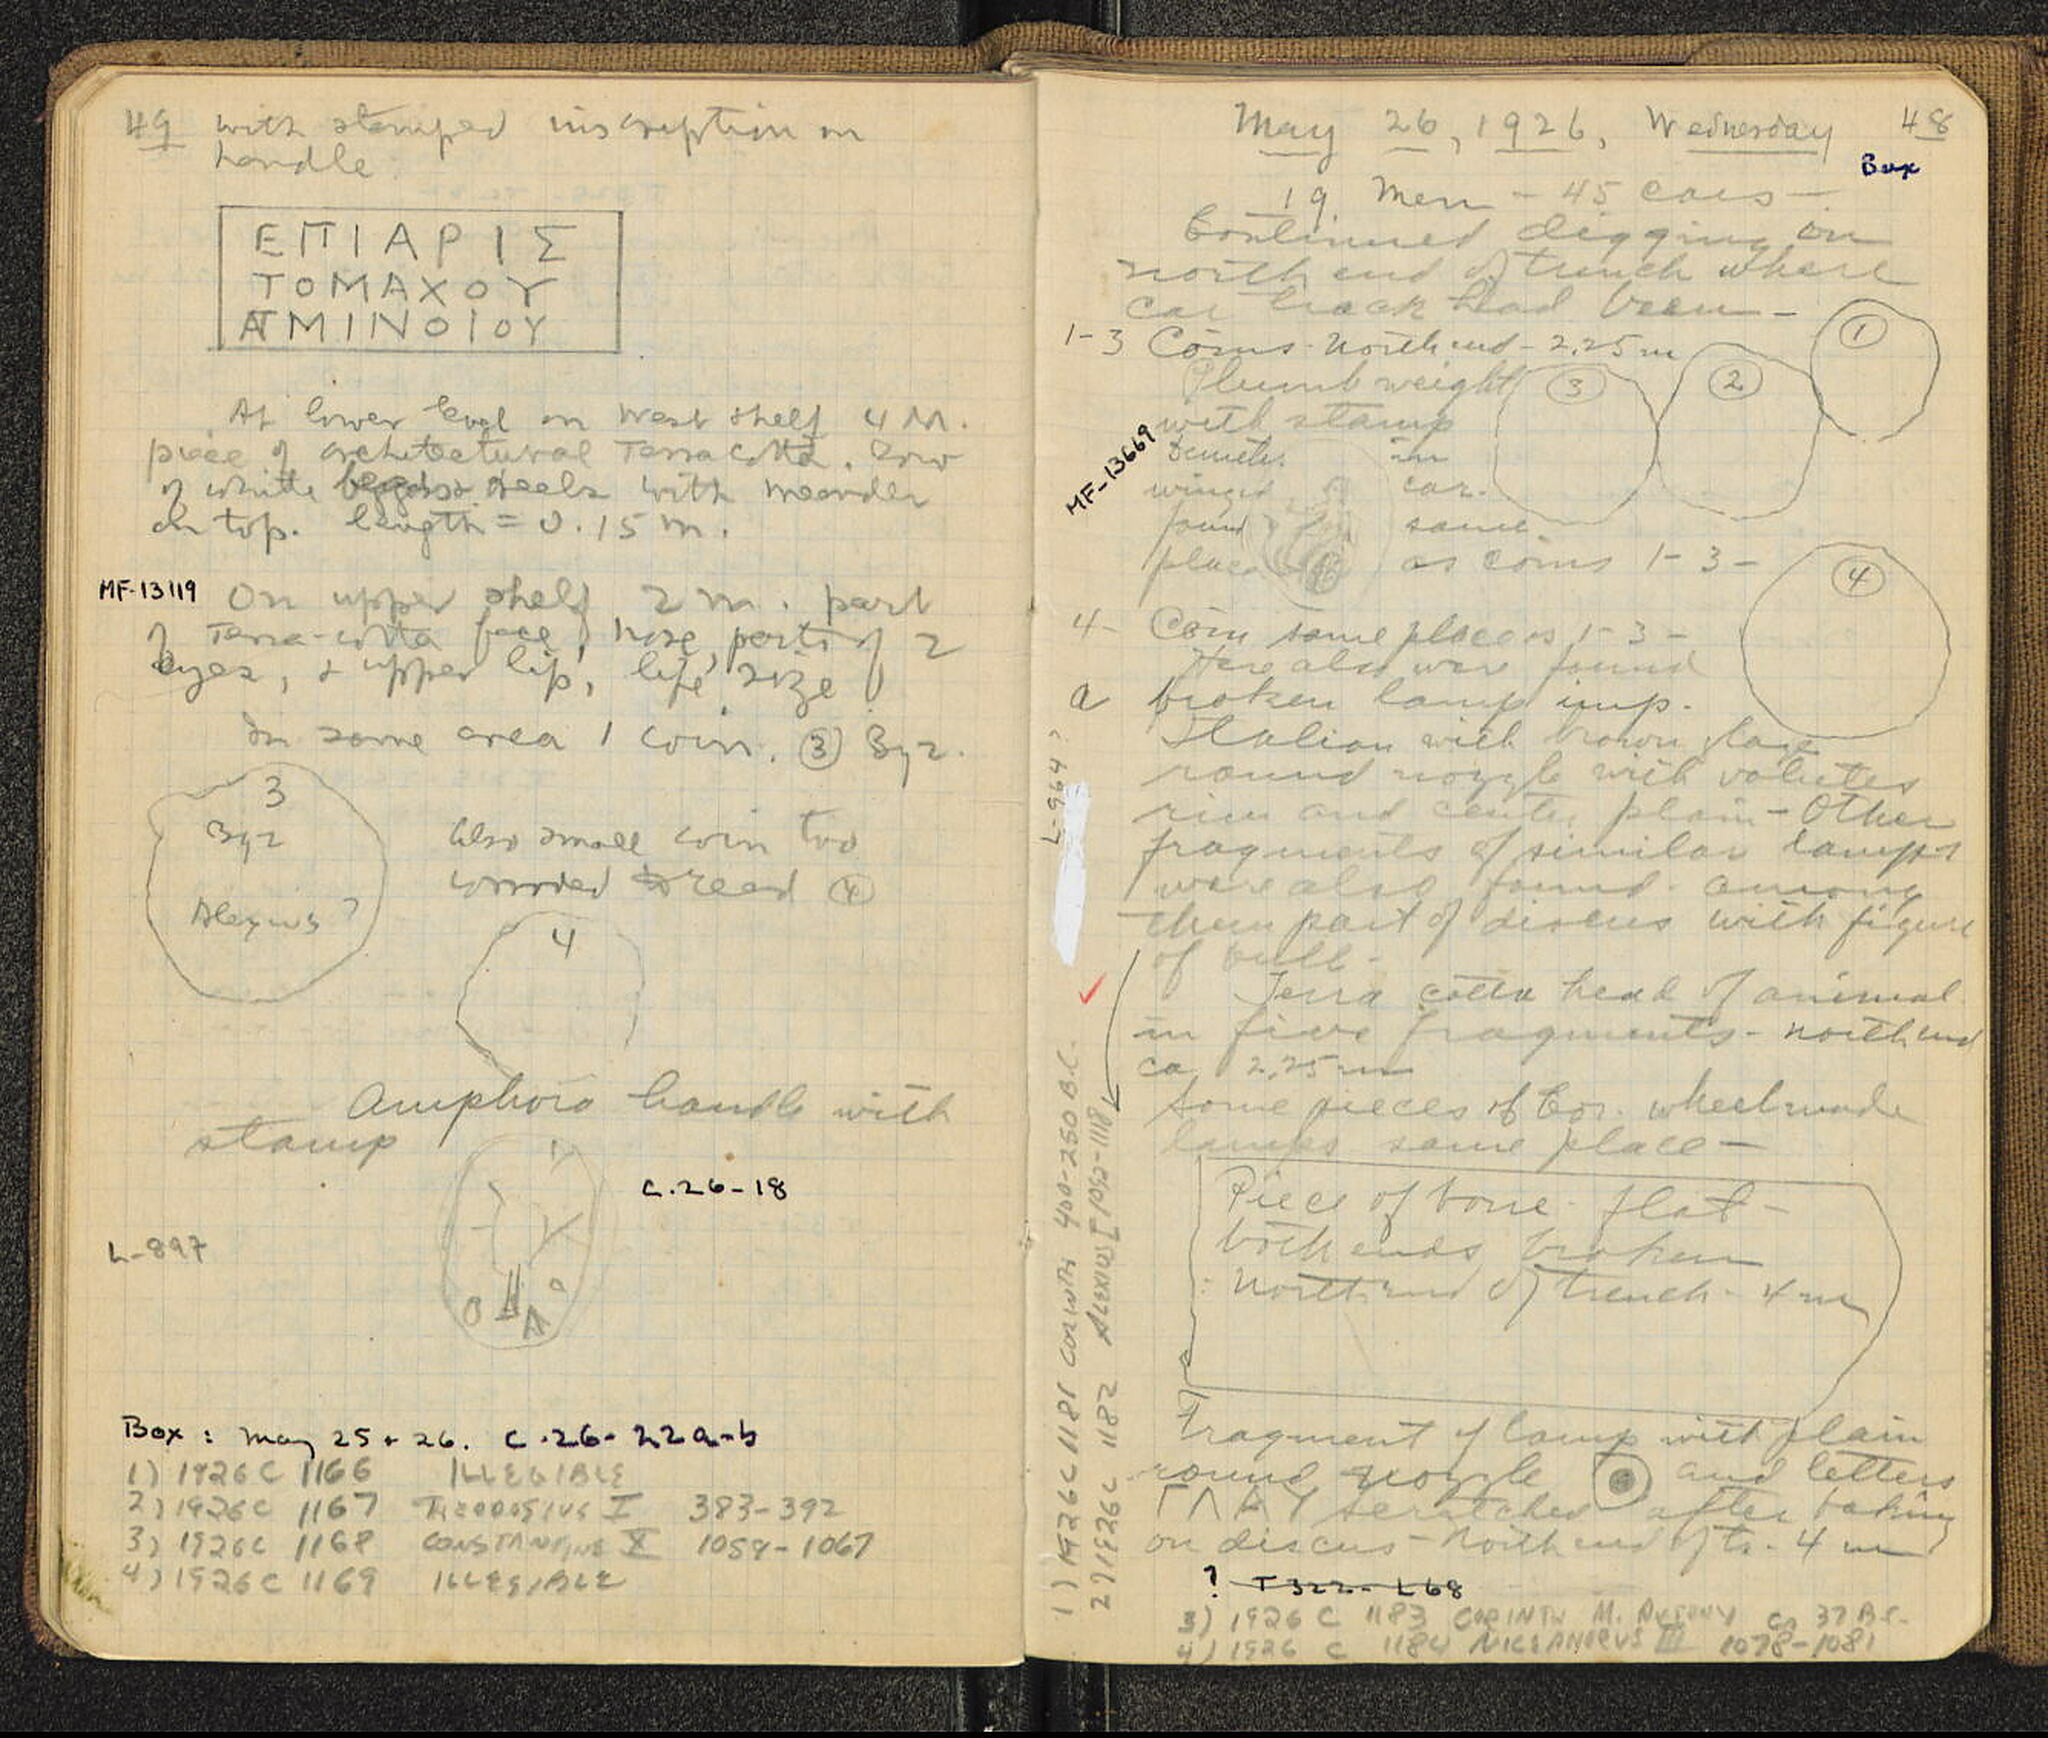 49 with stamped inscription on
handle.
ΕΠΙΑΡΙΣ
ΤΟΜΑΧΟΥ
ΑΓΜΙΝΟΙΟΥ
At lower level on West shelf 4 M.
piece of architectural Terra cotta. Row
of white reels with meander
on top. length = 0.15 m.
MF-13119 On upper shelf 2 m. part
of Terra-cotta face, nose, parts of 2
eyes, & upper lip, life size
In same area 1 coin. 3 Byz.
3
Byz
Alexius ?
Also small coin too
corroded to read 4
4
Amphora handle with
stamp
C.26-18
L-897
Box: May 25 + 26. C.26-22a-b
1) 1926 C 1166 ILLEGIBLE
2) 1926 C 1167 THEODOSIUS I 383-392
3) 1926 C 1168 CONSTANTINE X 1059-1067
4) 1926 C 1169 ILLEGIBLE
May 26, 1926, Wednesday 48
Box
19 Men - 45 cars -
Continued digging on
north end of trench where
car track had been -
1
1-3 Coins - North end - 2.25 m
2
3
Plumb weight
with stamp
MF-13669
Demeter in
winged car.
found same
place as coins 1-3 -
4
4- Coin same place as 1-3 -
Here also were found
a broken lamp imp.
Italian with brown glaze
round nozzle with volutes
rim and center plain - Other
fragments of similar lamps
were also found. among
them part of discus with figure
of bull -
L-964?
Terra cotta head of animal
in five fragments - north end
ca 2.25 m
Some pieces of Cor. wheelmade
lamps same place -
Piece of bone flat -
both ends broken
North end of trench - 4 m
Fragment of lamp with plain
round nozzle and letters
scratched after baking
on discus - North end of tr. 4 m
? T 322 - L68
1) 1926 C 1181 CORINTH 400-250 B.C.
2) 1926 C 1182 ALEXIUS I 1092-1118
3) 1926 C 1183 CORINTH M. ANTONY ca 37 B.C.
4) 1926 C 1184 NICEPHORUS III 1078-1081